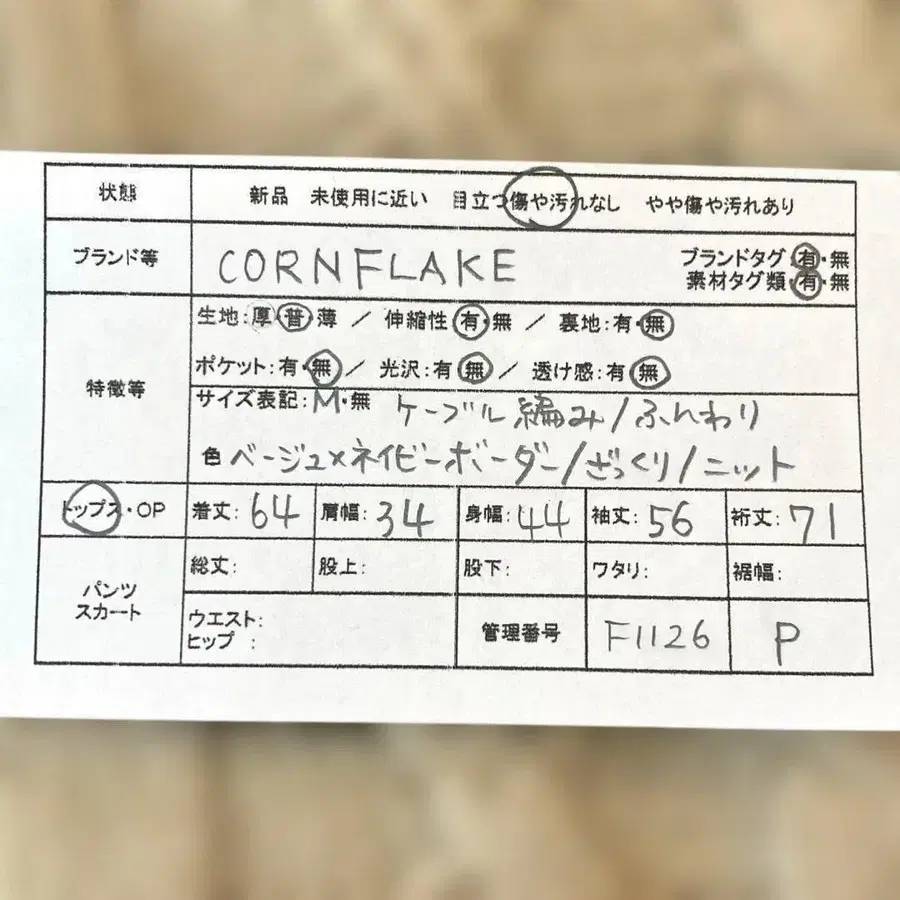 状態 新品 未使用に近い 目立つ傷や汚れなし やや傷や汚れあり
ブランド等 CORNFLAKE ブランドタグ:有・無
素材タグ類:有・無
特徴等 生地:厚・普・薄 / 伸縮性:有・無 / 裏地:有・無
ポケット:有・無 / 光沢:有・無 / 透け感:有・無
サイズ表記:M・無 ケーブル編み/ふんわり
色 ベージュ×ネイビーボーダー/ざっくり/ニット
トップス・OP 着丈:64 肩幅:34 身幅:44 袖丈:56 裄丈:71
パンツ スカート 総丈: 股上: 股下: ワタリ: 裾幅:
ウエスト:
ヒップ : 管理番号 F1126 P